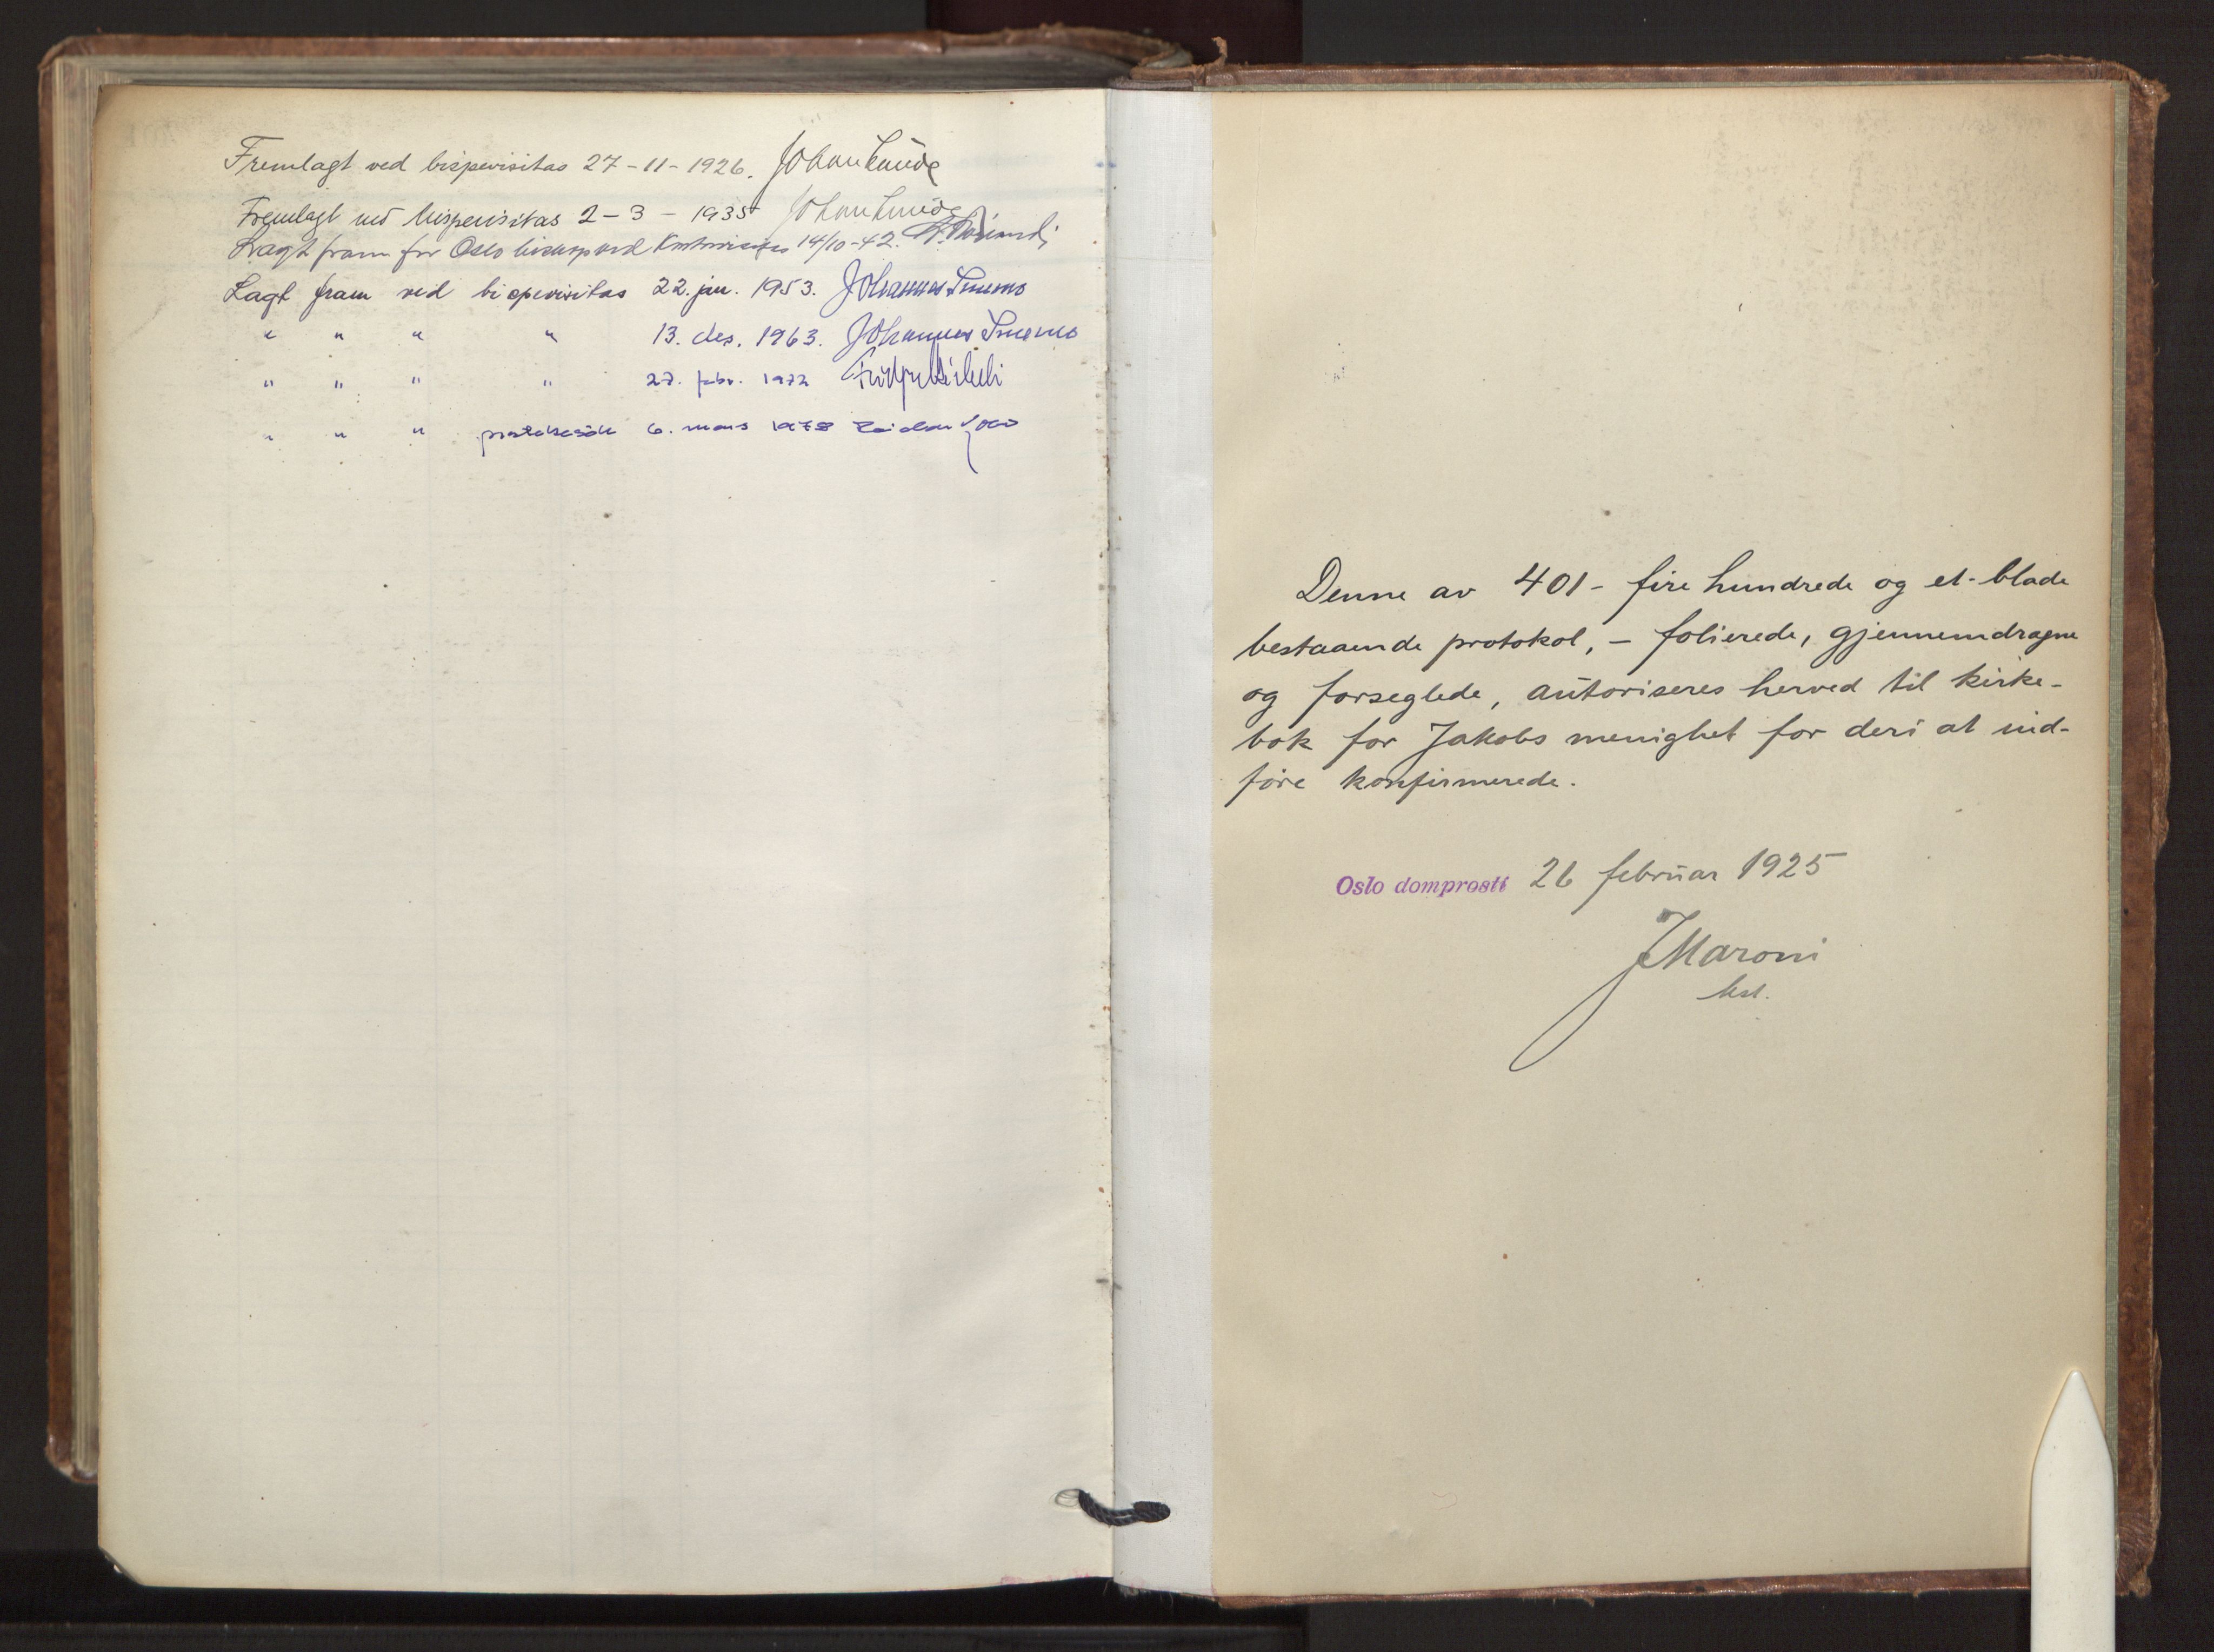 Fremlagt ved bispevisitas 27-11-1926. Johan Lunde
Fremlagt ved bispevisitas 2-3-1935 Johan Lunde
Lagt fram for Oslo biskop ved 14/10-42.
Lagt fram ved bispevisitas 22. jan. 1953. Johannes Smemo
" " " " 13. des. 1963. Johannes Smemo
" " " " 27. febr. 1972 Fridtjov Birkeli
" " " prostebesøk 6. mars 1978 Reidar
Denne av 401 - fire hundrede og et - blade
bestaaende protokol, - folierede, gjennemdragne
og forseglede, autoriseres herved til kirke-
bok for Jakobs menighet for deri at ind-
føre konfirmerede.
Oslo domprosti 26 februar 1925
J Maroni
kst.